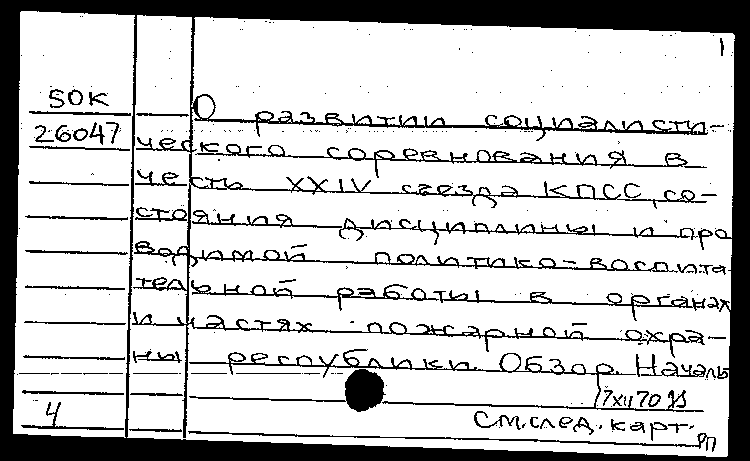 1
SOK
О развитии социалисти-
26047
ческого соревнования в
честь XXIV съезда КПСС, со-
стояния дисциплины и про
водимой политико-воспита
тельной работы в органах
и частях пожарной охра-
ны республики. Обзор. Началь
17XII70
4
См.след.карт.
РП